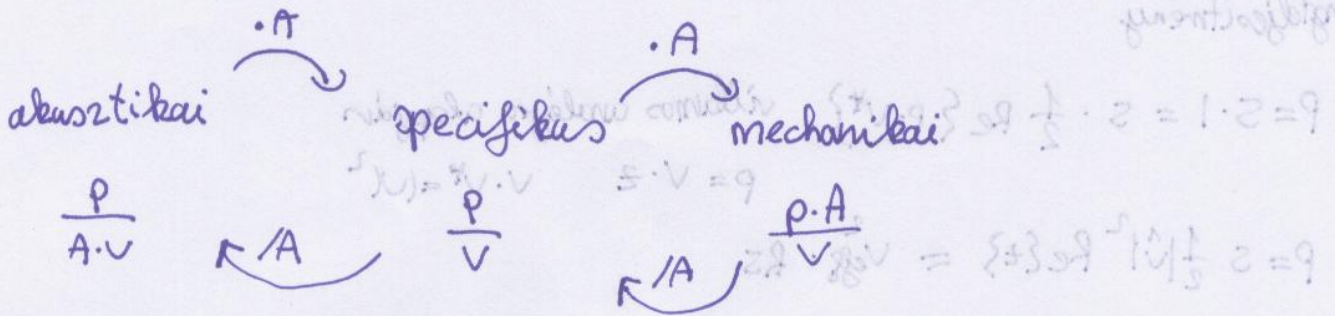 ·A ·A
akusztikai specifikus mechanikai
p/(A·v) p/v p·A/v
/A /A